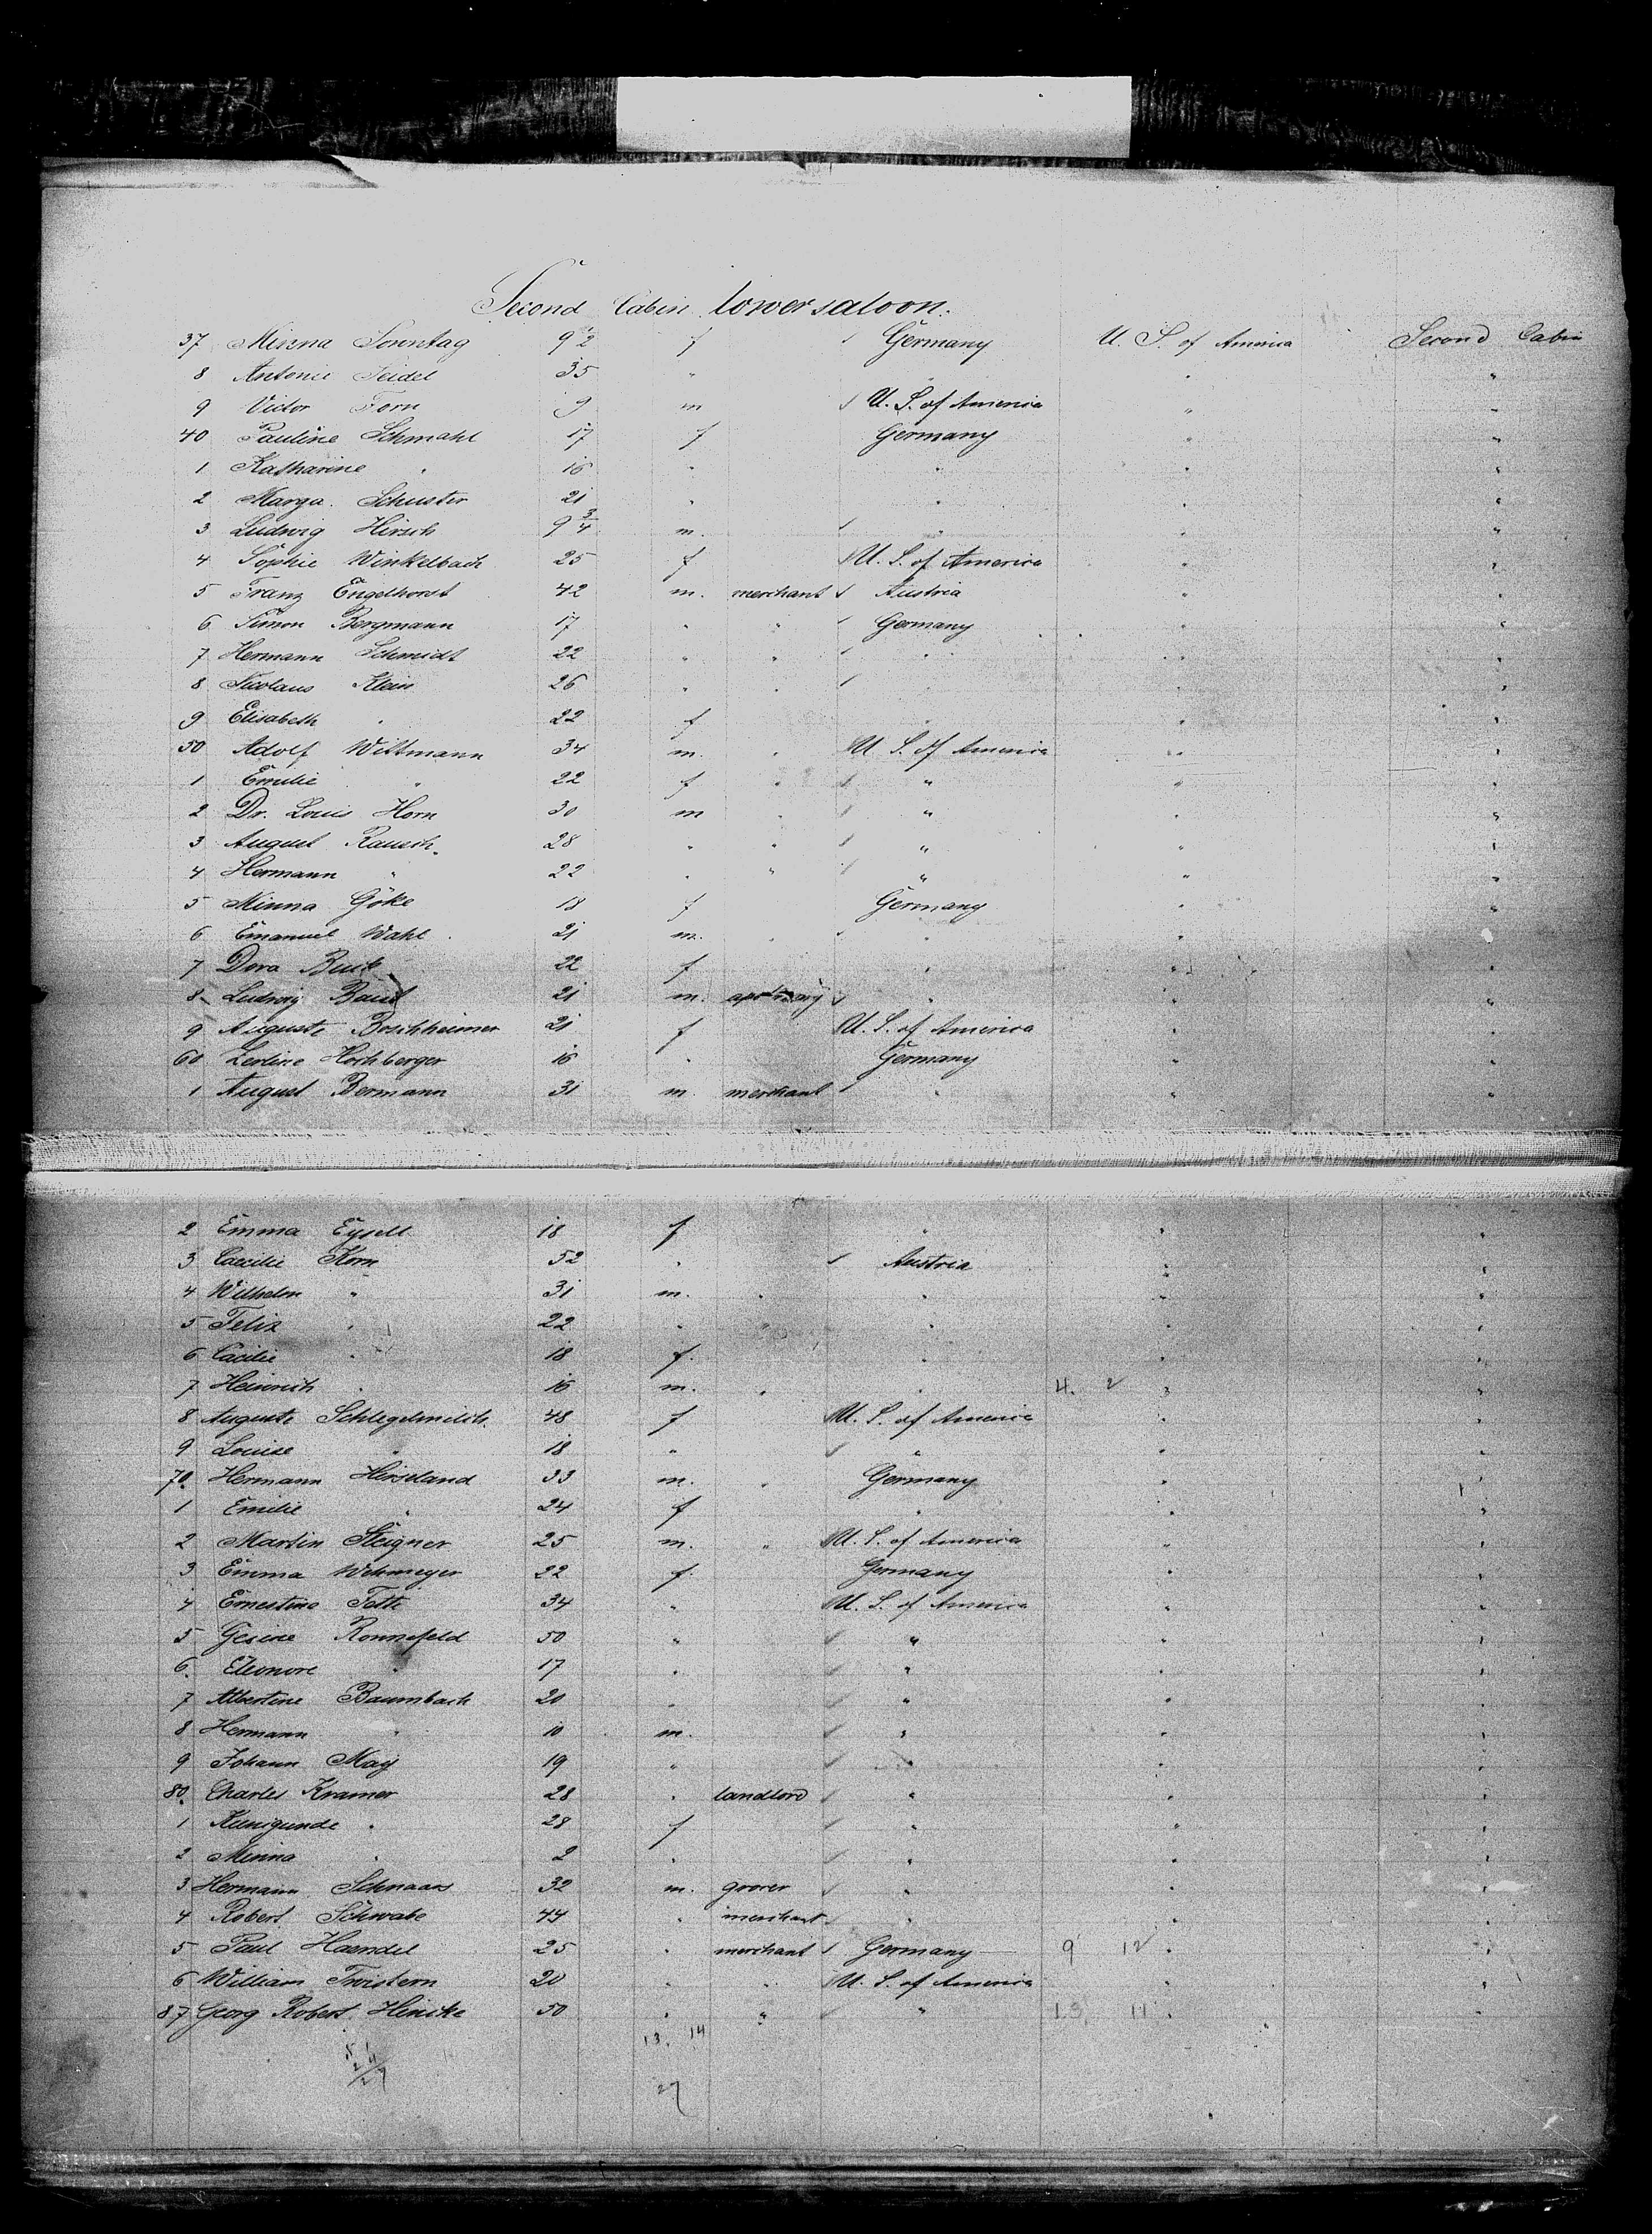 Second Cabin lower saloon.
37 Minna Sonntag 9 f Germany U. S. of America Second Cabin
8 Antonie Seidel 35 " " " "
9 Victor Forn 9 m U. S. of America " "
40 Pauline Schmahl 17 f Germany " "
1 Katharine " 16 " " " "
2 Marga. Schuster 21 " " " "
3 Ludwig Hirsch 9 3/4 m. " " "
4 Sophie Winkelbach 25 f U. S. of America " "
5 Franz Engelhorst 42 m. merchant Austria " "
6 Simon Bergmann 17 " " Germany " "
7 Hermann Schmidt 22 " " " " "
8 Nicolaus Klein 26 " " " " "
9 Elisabeth " 22 f " " "
50 Adolf Wittmann 34 m. " U. S. of America " "
1 Emilie " 22 f " " " "
2 Dr. Louis Horn 30 m " " " "
3 August Rausch. 28 " " " " "
4 Hermann " 22 " " " " "
5 Minna Göke 18 f Germany " "
6 Emanuel Wahl 21 m. " " " "
7 Dora 22 f " " "
8 Ludwig 21 m. " " "
9 Auguste Boschheimer 21 f U. S. of America " "
60 Zerline Hochberger 16 " Germany " "
1 August Bermann 31 m merchant " " "
2 Emma Eysell 18 f " " "
3 Caecilie Korn 52 " Austria " "
4 Wilhelm " 31 m. " " " "
5 Felix " 22 " " " " "
6 Cäcilie " 18 f. " " "
7 Heinrich " 16 m. " " 4. 2 " "
8 Auguste Schlegelmilch. 48 f U. S. of America " "
9 Louise " 18 " " " "
70. Hermann Hirseland 33 m. " Germany " "
1 Emilie " 24 f " " "
2 Martin Steigner 25 m. " U. S. of America " "
3 Emma Wehmeyer 22 f. Germany " "
4 Ernestine 34 " U. S. of America " "
5 Gesine Ronnefeld 50 " " " "
6. Eleonore " 17 " " " "
7 Albertine Baumbach 20 " " " "
8 Hermann " 10 m. " " "
9 Johann May 19 " " " "
80. Charles Kramer 28 " landlord " " "
1 Kunigunde " 28 f " " "
2 Minna " 2 " " " "
3 Hermann Schnaars 32 m. grocer " " "
4 Robert Schwabe 44 " merchant " " "
5 Paul Haendel 25 " merchant Germany 9 12 " "
6 William Twistern 20 " " U. S. of America " "
87 Georg Robert Hincke 50 " " " 13. 11 " "
13. 14
27